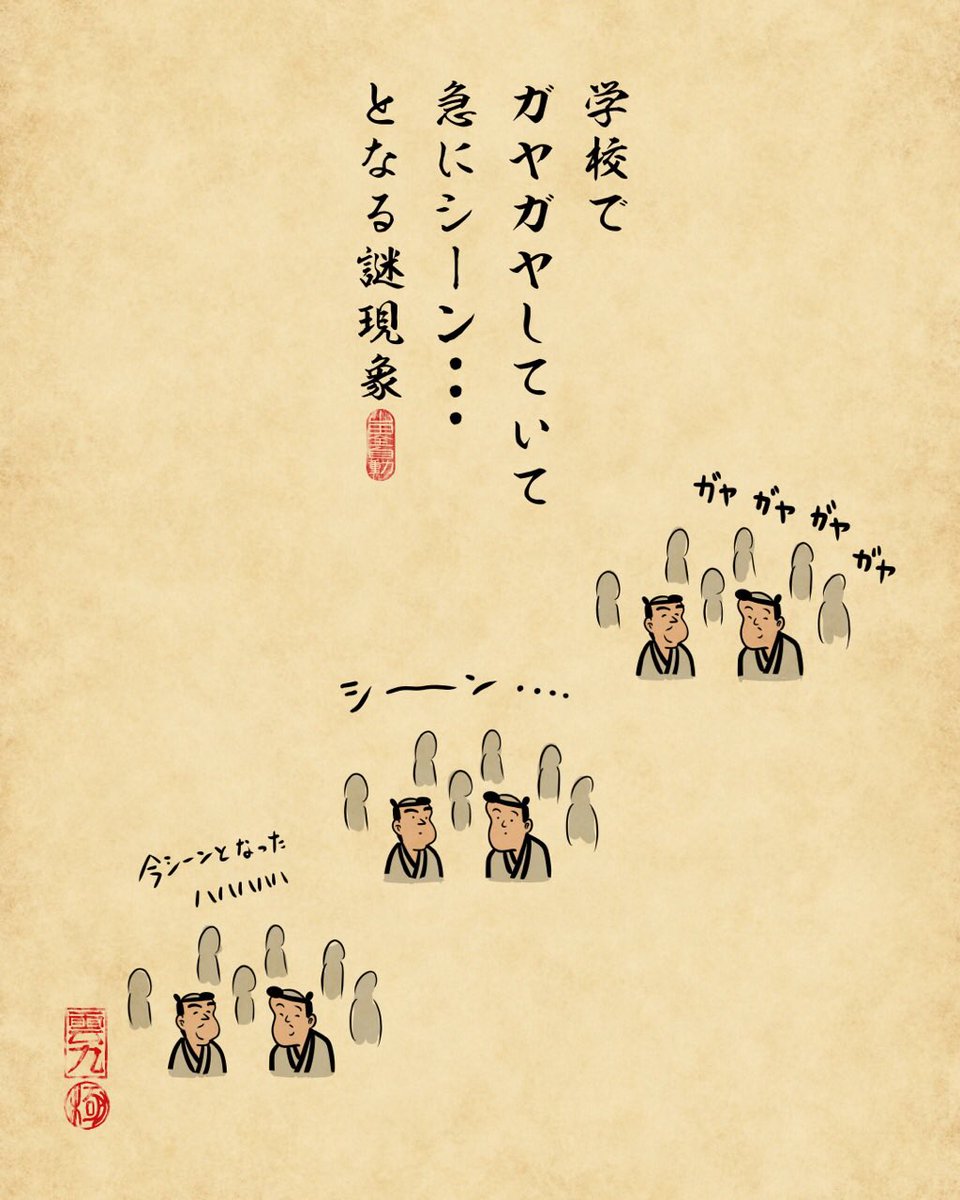 学校で
ガヤガヤしていて
急にシーン・・・
となる謎現象
ガヤ ガヤ ガヤ ガヤ
シーン ····
今シーンとなった
ハハハハハ